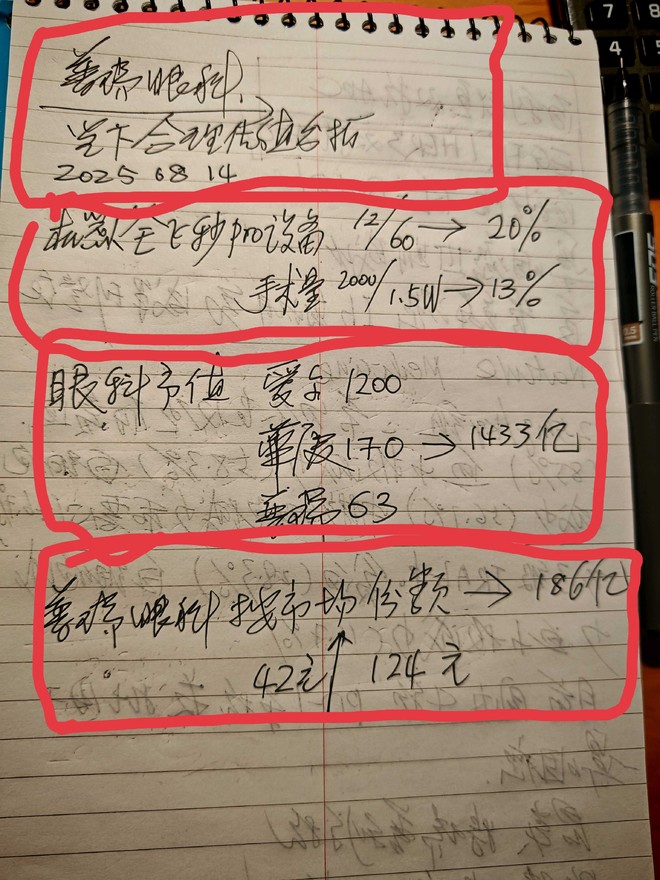 普瑞眼科
当下合理估值分析
2025 08 14
全飞秒pro设备 12/60 → 20%
手术量 2000/1.5W → 13%
眼科市值 爱尔 1200
华厦 170 → 1433亿
普瑞 63
普瑞眼科 按市场份额 → 186亿
42元 124元
7 8
4 5